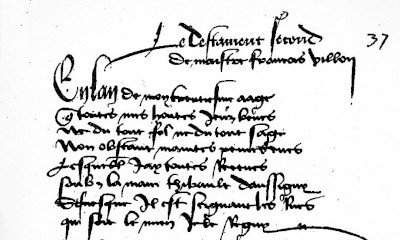 Le testament second 37
de maistre francois villon
En lan de mon trentiesme aage
toutes mes hontes jeuz beues
Ne du tout fol ne du tout sage
Non obstant maintes peines eues
Lesquelles jay toutes receues
Soubz la main thibault daussigny
Sevesque il est seignant les rues
qui soit le mien je le regny